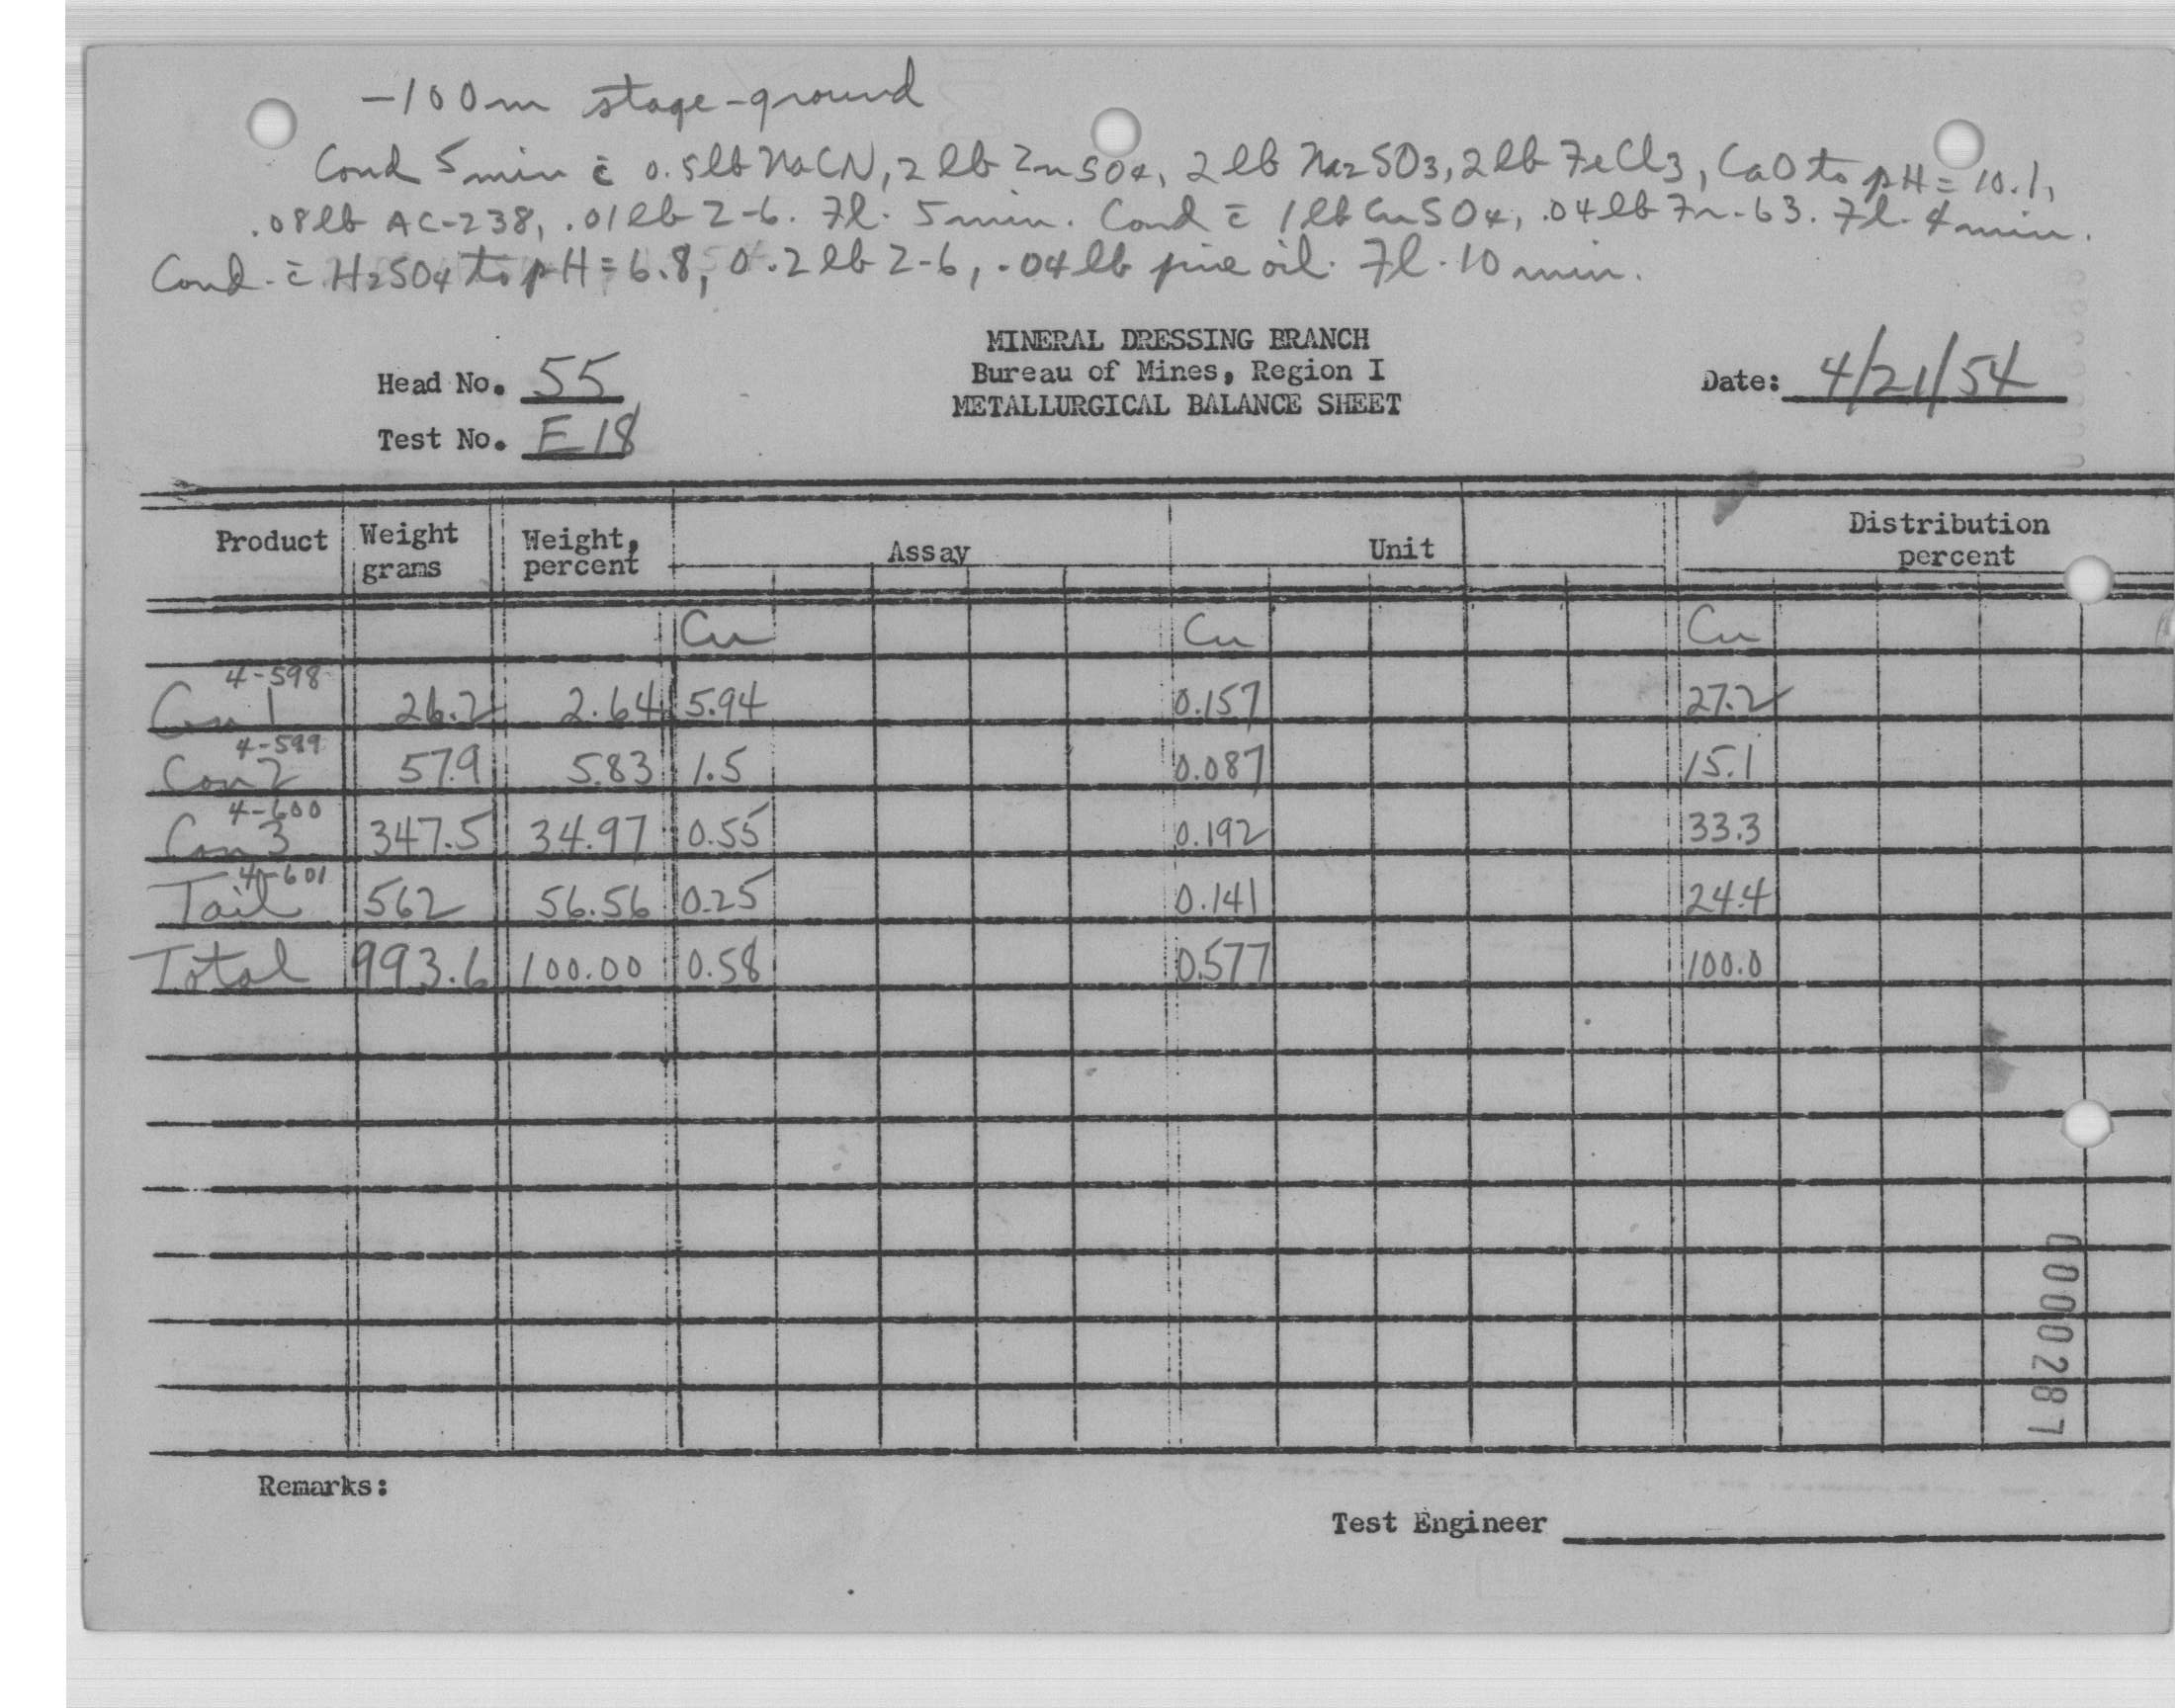 -100m stage-ground
Cond 5 min c̄ 0.5lb NaCN, 2 lb ZnSO4, 2 lb Na2SO3, 2 lb FeCl3, CaO to pH = 10.1,
.08lb AC-238, .01lb Z-6. Fl. 5 min. Cond c̄ 1 lb CuSO4, .04lb Fr.-63. Fl. 4 min.
Cond. c̄ H2SO4 to pH = 6.8, 0.2 lb Z-6, .04 lb pine oil. Fl. 10 min.
MINERAL DRESSING BRANCH
Bureau of Mines, Region I
METALLURGICAL BALANCE SHEET
Head No. 55
Test No. E18
Date: 4/21/54
Product Weight grams Weight, percent Assay Unit Distribution percent
Cu Cu Cu
4-598
Con 1 26.2 2.64 5.94 0.157 27.2
4-599
Con 2 57.9 5.83 1.5 0.087 15.1
4-600
Con 3 347.5 34.97 0.55 0.192 33.3
4-601
Tail 562 56.56 0.25 0.141 24.4
Total 993.6 100.00 0.58 0.577 100.0
0000287
Remarks:
Test Engineer